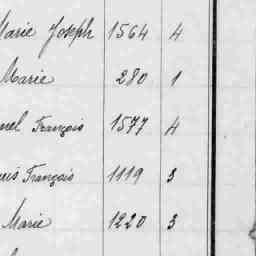 Marie Joseph 1564 4
Marie 280 1
François 1577 4
François 1119 3
Marie 1220 3